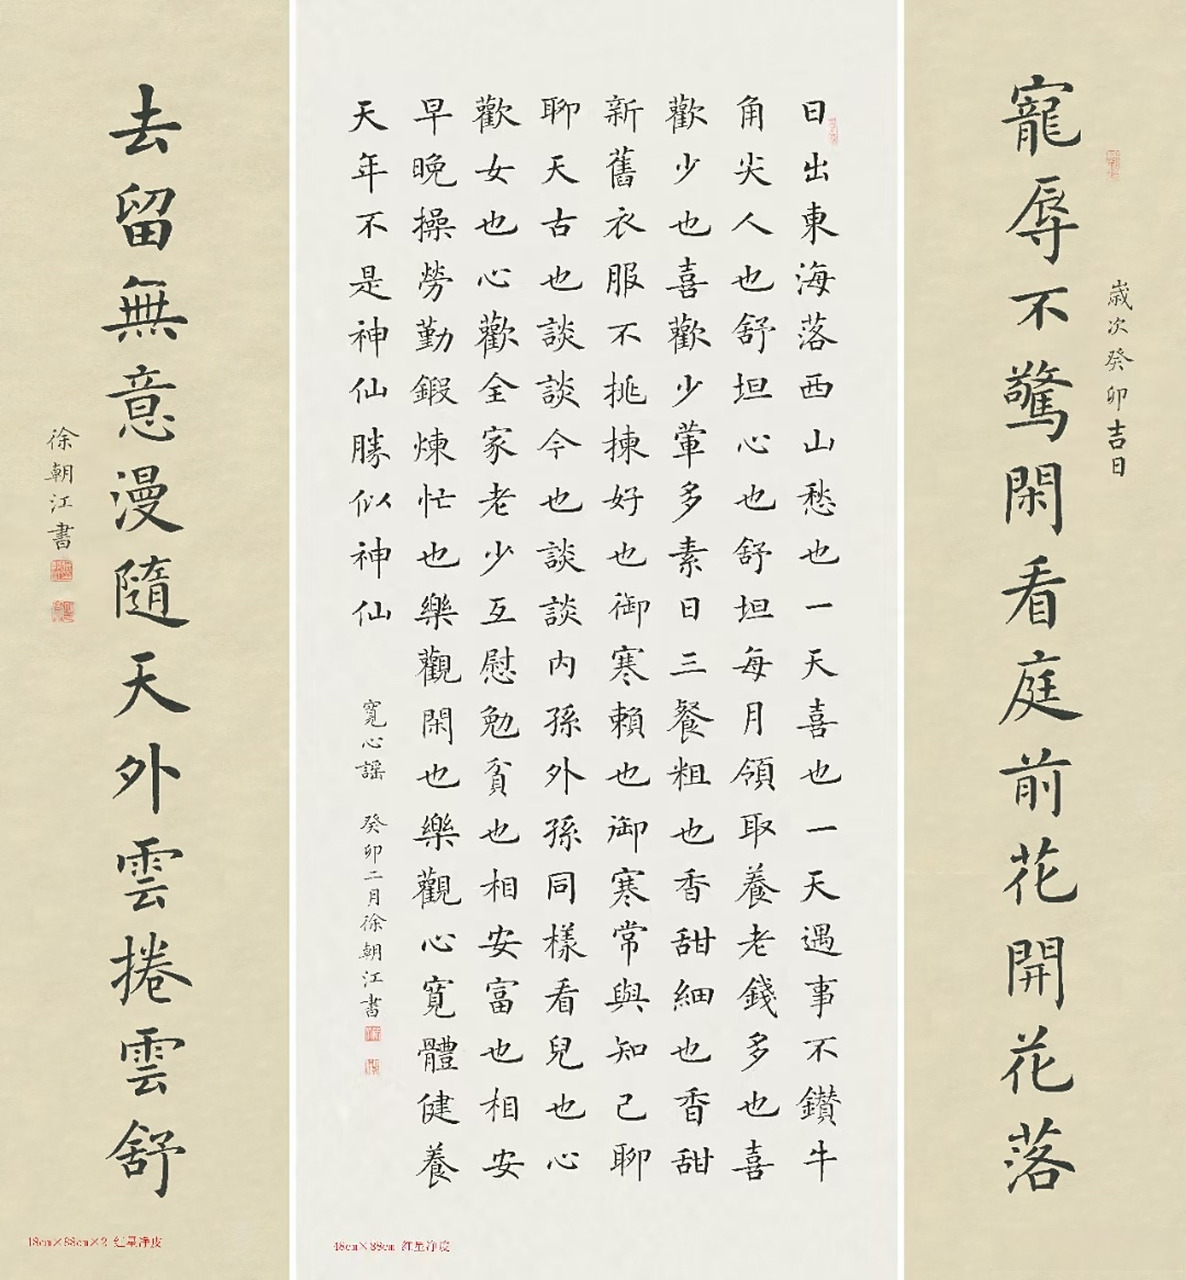 寵辱不驚閑看庭前花開花落
歲次癸卯吉日
日出東海落西山愁也一天喜也一天遇事不鑽牛
角尖人也舒坦心也舒坦每月領取養老錢多也喜
歡少也喜歡少葷多素日三餐粗也香甜細也香甜
新舊衣服不挑揀好也御寒賴也御寒常與知己聊
聊天古也談談今也談談內孫外孫同樣看兒也心
歡女也心歡全家老少互慰勉貧也相安富也相安
早晚操勞勤鍛煉忙也樂觀閑也樂觀心寬體健養
天年不是神仙勝似神仙
寬心謠 癸卯二月徐朝江書
去留無意漫隨天外雲捲雲舒
徐朝江書
48cm×88cm×2 红星净皮
48cm×88cm 红星净皮